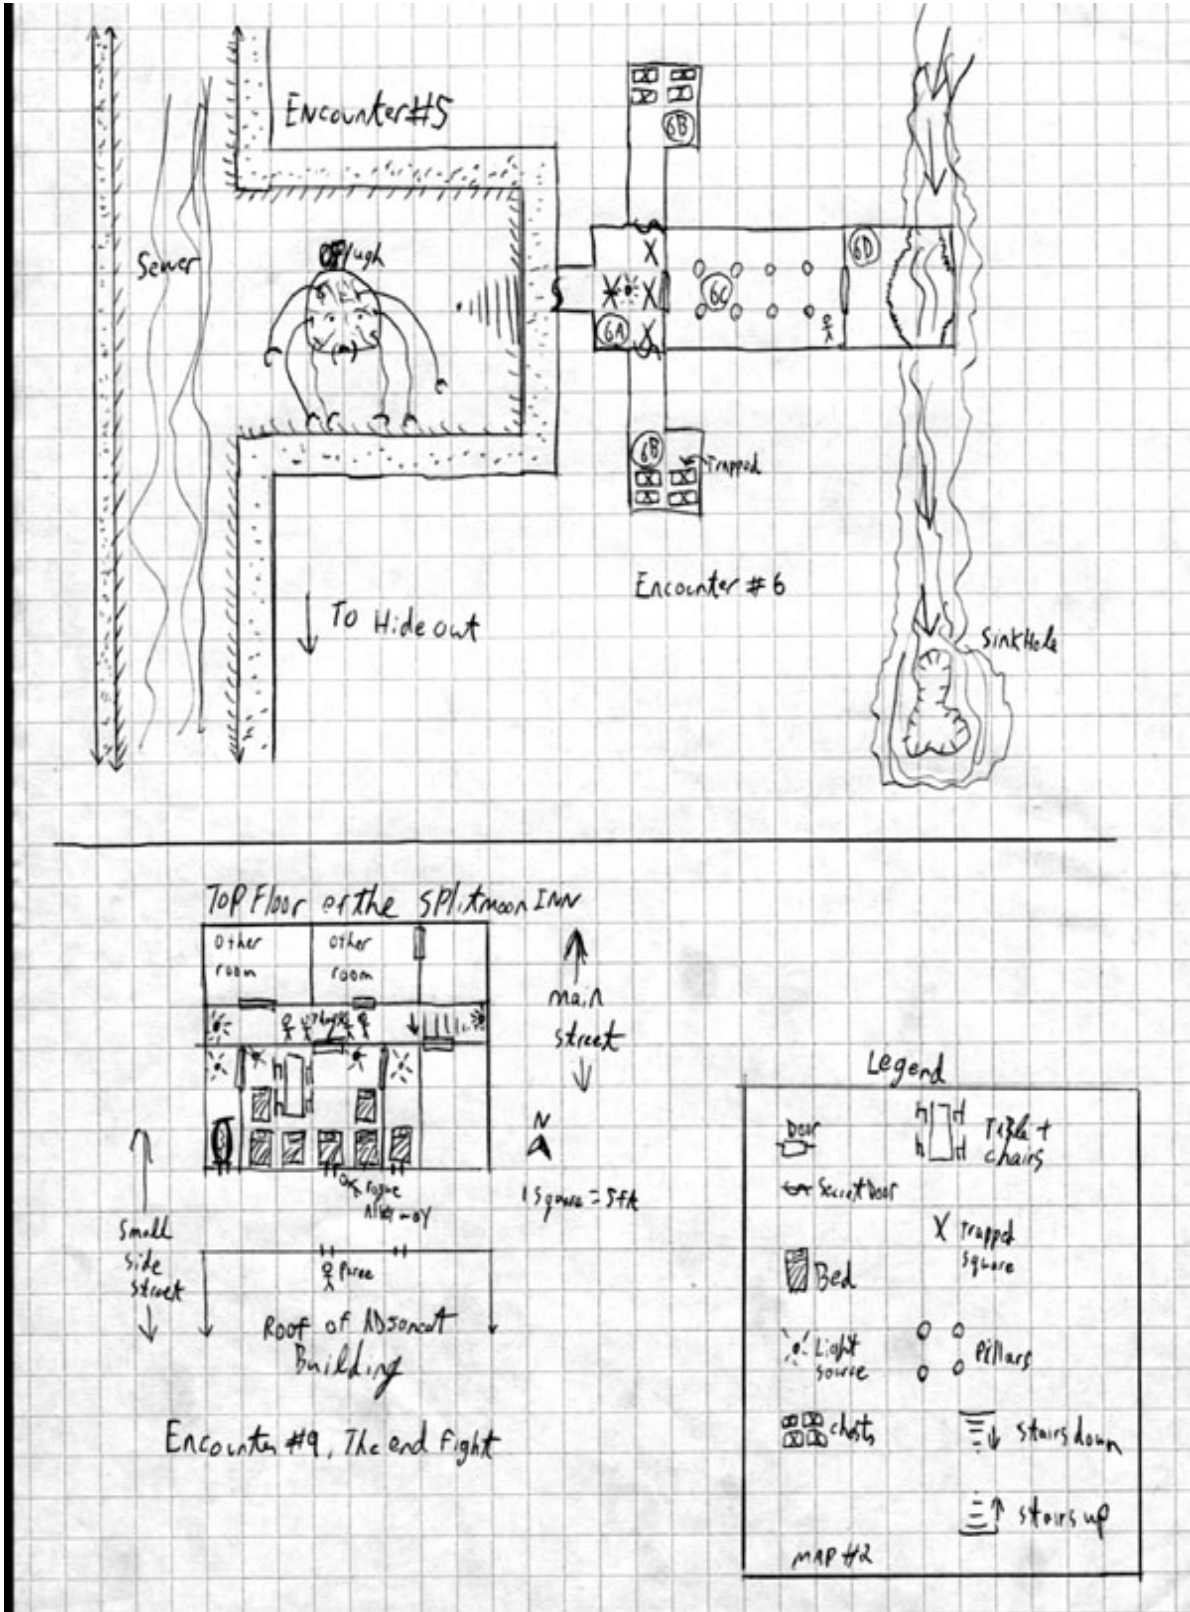 Encounter #5
6B
Sewer
6D
6C
6A
6B
Trapped
Encounter #6
To Hideout
SinkHole
Top Floor of the Splitmoon INN
other
room
other
room
main
street
N
1 Square = 5ft
rogue
Alley-way
Small
side
street
Roof of ADSoncat
Building
Encounter #9, The end Fight
Legend
Door
Table +
chairs
Secret Door
X Trapped
square
Bed
Light
source
Pillars
chests
stairs down
stairs up
MAP #2